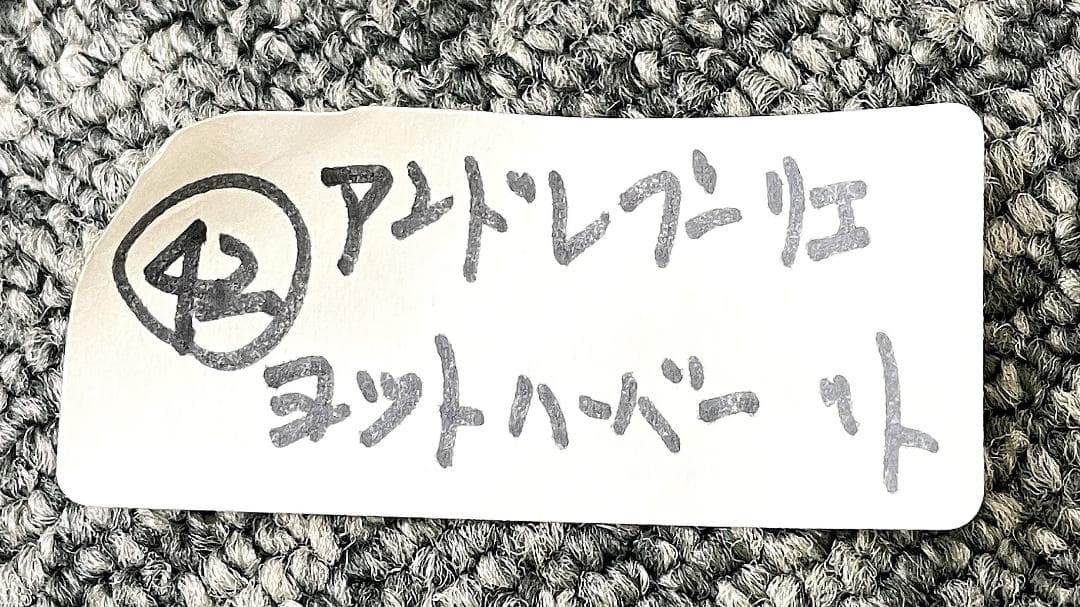 ㊷ アンドレブーリエ
ヨットハーバー リト